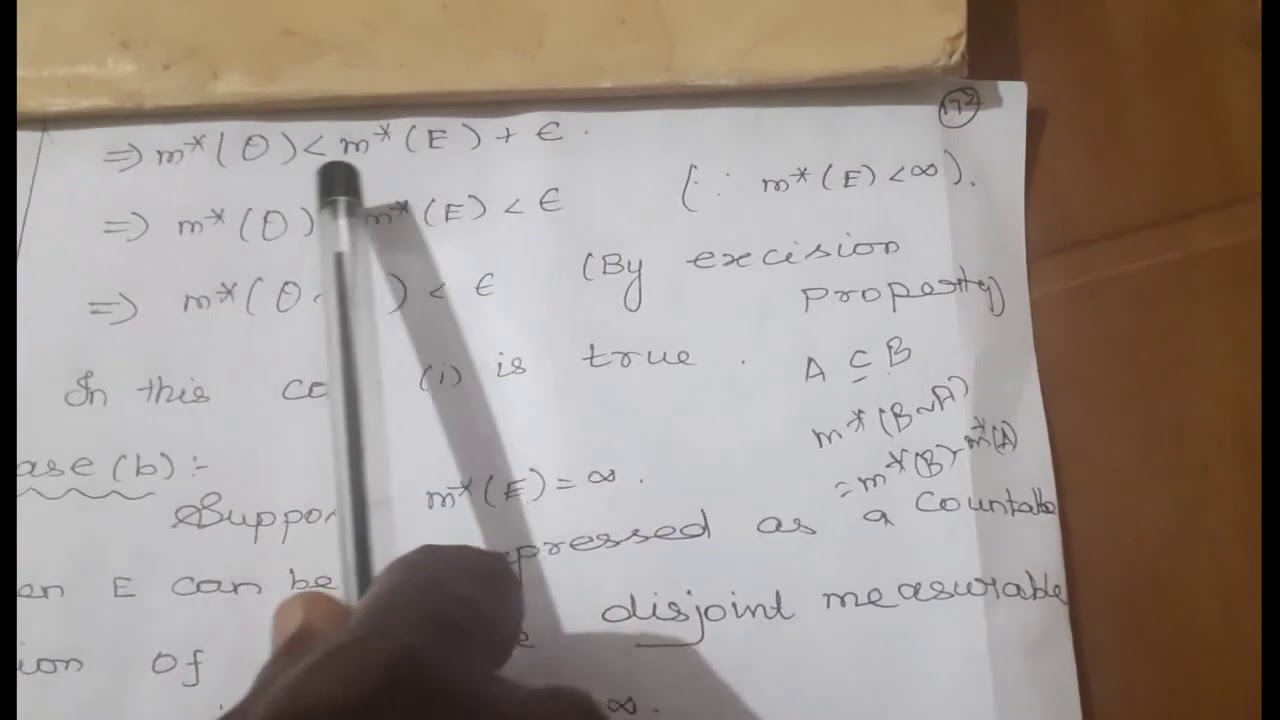 173
⇒ m*(O) < m*(E) + ϵ.
⇒ m*(O) m*(E) < ϵ (∵ m*(E) < ∞).
⇒ m*(O ) < ϵ (By excision property)
In this (i) is true. A ⊆ B
m*(B~A)
= m*(B) - m*(A)
ase (b) :-
m*(E) = ∞.
en E can be pressed as a countable
ion of disjoint measurable
∞.